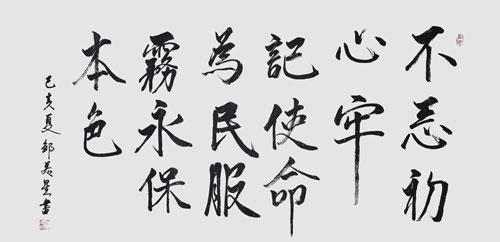 不忘初
心牢
記使命
為民服
霧永保
本色
己亥夏鄒書